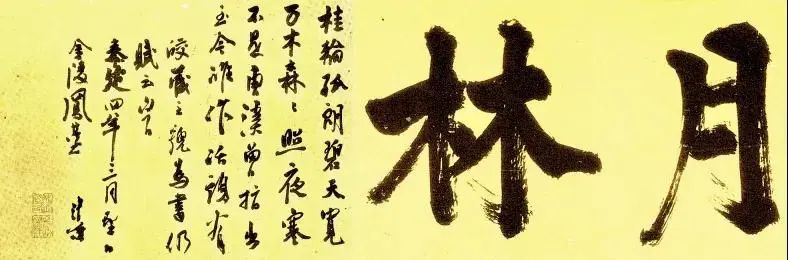 月林
桂輪孤朗碧天寬
万木森々照夜寒
不是曹溪曾指出
至今誰作話頭看
皎藏主號為書仍
賦云
泰定四年三月望日
金陵鳳臺 清茂